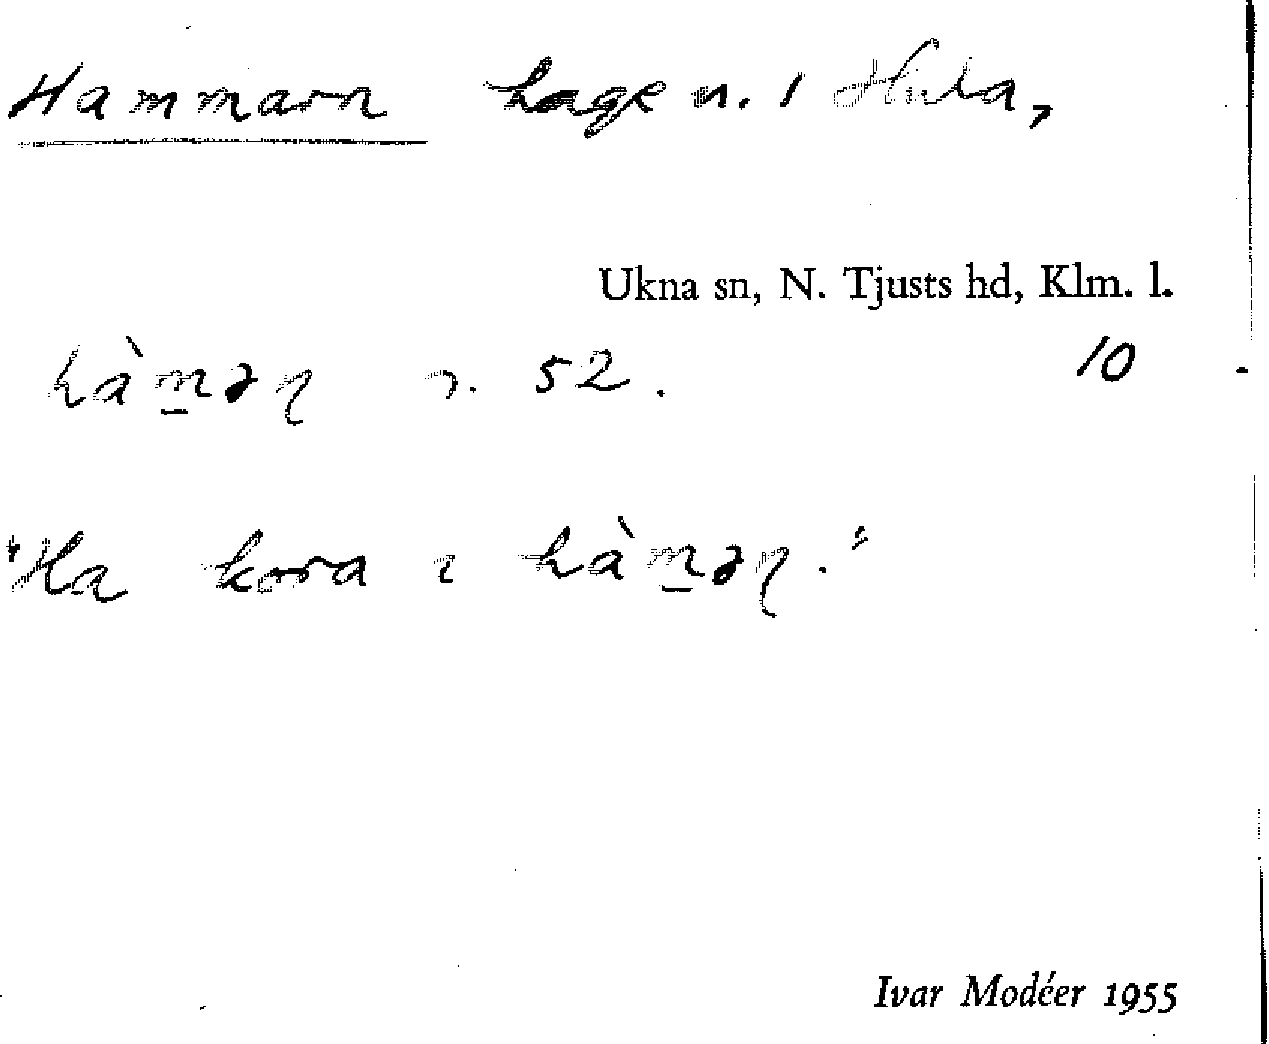 Hammarn hage n. 1 Hula,
Ukna sn, N. Tjusts hd, Klm. l.
hàm̲əɳ n. 52. 10
"Ha kora ı hàm̲əɳ."
Ivar Modéer 1955